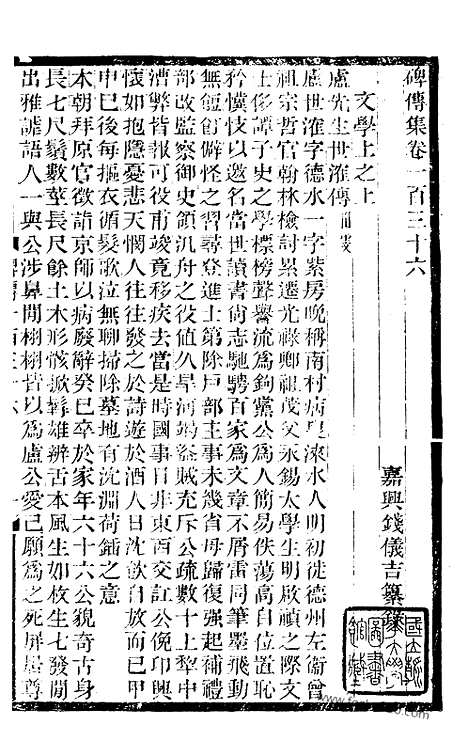 碑傳集卷一百三十六
嘉興錢儀吉纂錄
文學上之上
盧先生世㴶傳 田雯
盧世㴶字德水一字紫房晚稱南村病叟淶水人明初徙德州左衞曾
祖宗哲官翰林檢討累遷光祿卿祖茂父永錫太學生明啟禎之際文
士侈譚子史之學標榜聲譽流爲鉤黨公爲人簡易佚蕩高自位置恥
矜懻忮以邀名當世讀書尚志馳騁百家爲文章不屑雷同筆墨飛動
無餖飣僻怪之習尋登進士第除戶部主事未幾省母歸復强起補禮
部改監察御史領汎舟之役値久旱河竭盜賊充斥公疏數十上犂中
漕弊皆報可役甫竣竟移疾去當是時國事日非東西交訌公俛卬興
懷如抱隱憂悲天憫人往往發之於詩遊於酒人日沈飮自放而已甲
申已後每摳衣循髮歌泣無聊掃除墓地有沈淵荷鍤之意
本朝拜原官徵詣京師以病廢辭癸巳卒於家年六十六公貌奇古身
長七尺鬚數莖長尺餘土木形骸掀髥雄辨舌本風生如枚生七發閒
出雅謔語人一與公涉鼻閒栩栩皆以爲盧公愛已願爲之死屛居尊